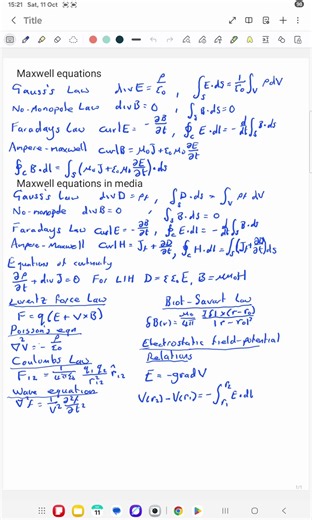 15:21 Sat, 11 Oct
Title
Maxwell equations
Gauss's Law divE = ρ/ε₀ , ∫_S E·dS = 1/ε₀ ∫_V ρdV
No-monopole Law divB = 0 , ∫_S B·dS = 0
Faradays Law curlE = -∂B/∂t , ∮_C E·dl = -d/dt ∫_S B·ds
Ampere-maxwell curlB = μ₀J + ε₀μ₀ ∂E/∂t
∮_C B·dl = ∫_S (μ₀J + ε₀μ₀ ∂E/∂t)·ds
Maxwell equations in media
Gauss's Law divD = ρf , ∫_S D·ds = ∫_V ρf dV
No-monopole divB = 0 , ∫_S B·ds = 0
Faradays Law curlE = -∂B/∂t , ∮_C E·dl = -d/dt ∫_S B·ds
Ampere-maxwell curlH = Jf + ∂D/∂t , ∮_C H·dl = ∫_S (Jf + ∂D/∂t)ds
Equation of continuity
∂ρ/∂t + divJ = 0 For LIH D = εε₀E, B = μμ₀H
Lorentz Force Law
F = q(E + V×B)
Biot-Savart Law
δB(r) = μ₀/4π Iδl×(r-r₀)/|r-r₀|³
Poisson's eqn
∇²V = -ρ/ε₀
Coulombs Law
F₁₂ = 1/4πε₀ q₁q₂/r₁₂² r̂₁₂
Wave equation
∇²f = 1/V² ∂²f/∂t²
Electrostatic field-potential
Relations
E = -gradV
V(r₂) - V(r₁) = -∫_r₁^r₂ E·dl